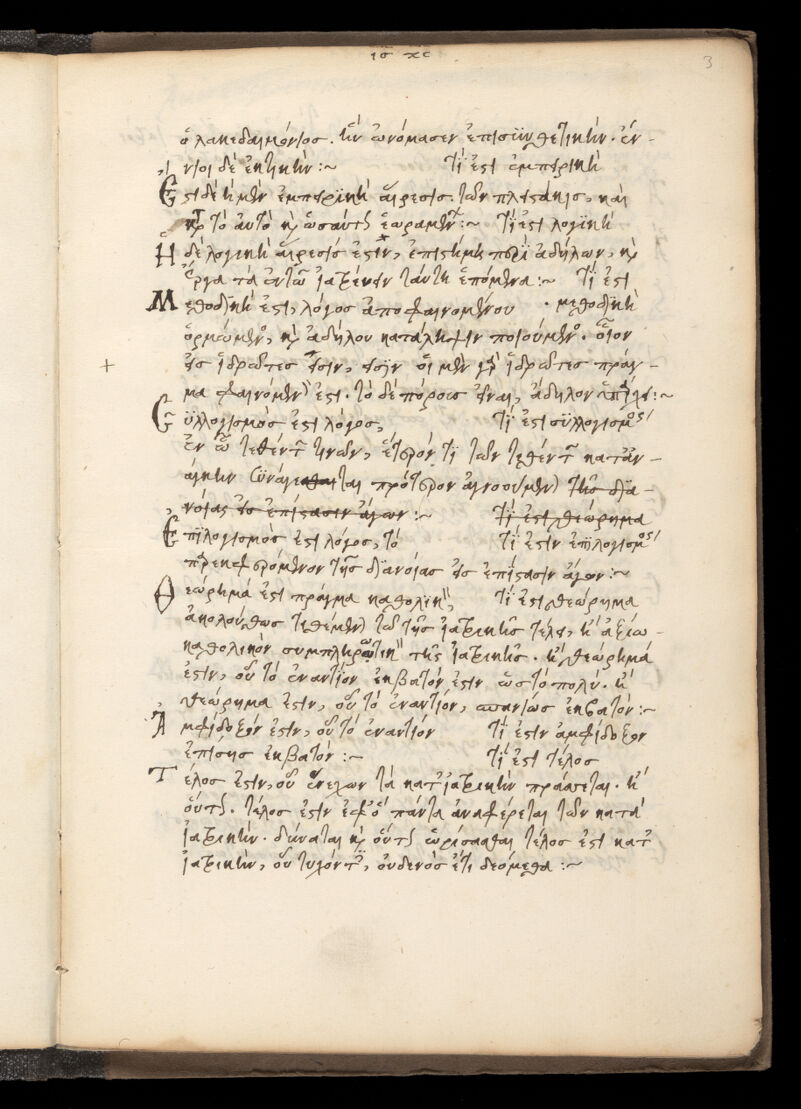 ις χς
3
ὁ λακεδαιμόνιος. ἣν ὠνόμασεν ἐπισυνθετικήν. ἔν-
νιοι δὲ ἐκτικήν :~ τί ἐστι ἐμπειρική
Ἔστι δὲ ἡ μὲν ἐμπειρικὴ αἵρεσις. τῶν πλειστάκις, καὶ
κατὰ τὸ αὐτὸ καὶ ὡσαύτως ἑωραμένων :~ τί ἐστι λογική
Ἡ δὲ λογικὴ αἵρεσίς ἐστιν, ἐπιστήμη περὶ ἀδήλων, καὶ
ἔργα τὰ ἐν τῷ ἰατρεύειν ταύτῃ ἑπόμενα :~ τί ἐστι
Μεθοδική ἐστι, λόγος ἀπὸ φαινομένου · μεθοδική
ὁρμώμενος, καὶ ἀδήλου κατάληψιν ποιούμενος. οἷον
εἰς ἱδρῶτες εἰσιν, εἰσὶν οἱ μὲν ἱδρῶτες πράγ-
μα φαινόμενον ἐστι. τὸ δὲ πόρους εἶναι, ἄδηλον :~
Συλλογισμός ἐστι λόγος, τί ἐστι συλλογισμός
ἐν ᾧ τεθέντων τινῶν, ἕτερόν τι τῶν τεθέντων κατ' ἀν-
άγκην συνάγεται πρότερον ἀγνοούμενον τῆς δια-
νοίας εἰς ἐπίστασιν ἄγων :~ τί ἐστι θεώρημα
Ἐπιλογισμός ἐστι λόγος, τὸ τί ἐστιν ἐπιλογισμός
προεκφερόμενον τῆς διανοίας εἰς ἐπίστασιν ἄγον :~
Θεώρημά ἐστι πρᾶγμα καθολικόν, τί ἐστι θεώρημα
ἀκολούθως τιθέμενον τῷ τῆς ἰατρικῆς τέλει, ἢ ἀξίω-
καθολικὸν συμπληρωτικὸν τῆς ἰατρικῆς. ἢ θεώρημά
ἐστιν, οὗ τὸ ἐναντίον ἐκβατόν ἐστιν ὡς τὸ πολύ. ἢ
θεώρημα ἐστιν, οὗ τὸ ἐναντίον, σπανίως ἐκβατόν :~
Ἀμφίδοξόν ἐστιν, οὗ τὸ ἐναντίον τί ἐστιν ἀμφίδοξον
ἐπίσης ἐκβατόν :~ τί ἐστι τέλος
Τέλος ἐστιν, οὗ ἕνεκων τὰ κατ' ἰατρικὴν πράσσεται. ἢ
οὕτως. τέλος ἐστιν ἐφ' ὃ πάντα ἀναφέρεται τῶν κατὰ
ἰατρικήν. δύναται καὶ οὕτως ὡρίσασθαι τέλος ἐστὶ κατ
ἰατρικήν, οὗ τυχόντες, οὐδενὸς ἔτι δεόμεθα :~